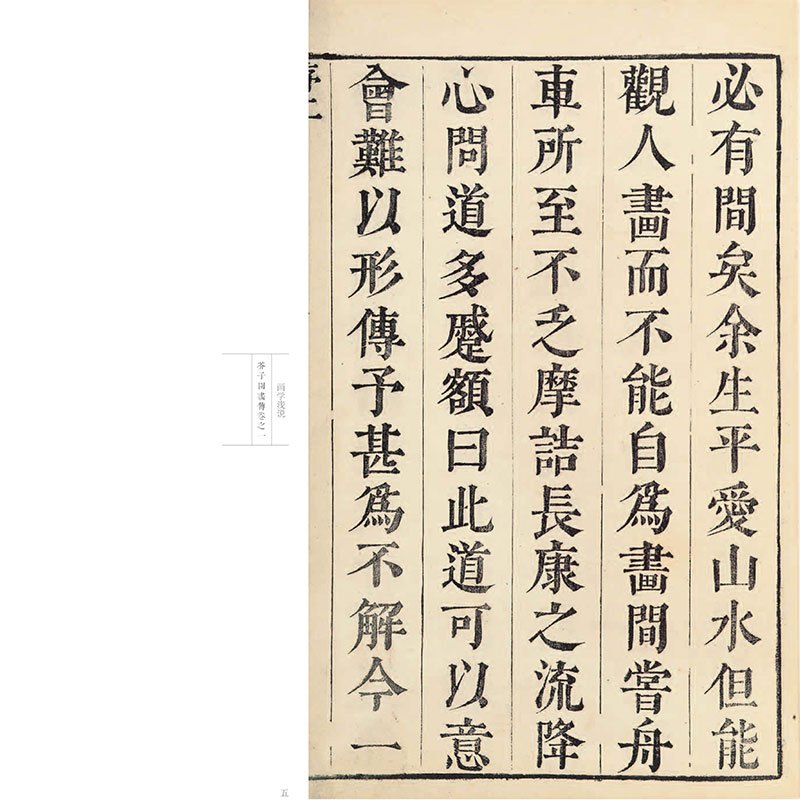 必有間矣余生平愛山水但能
觀人畫而不能自為畫間嘗舟
車所至不乏摩詰長康之流降
心問道多蹙額曰此道可以意
會難以形傳予甚為不解今一
序二
画学浅说
芥子園畫傳卷之一
五